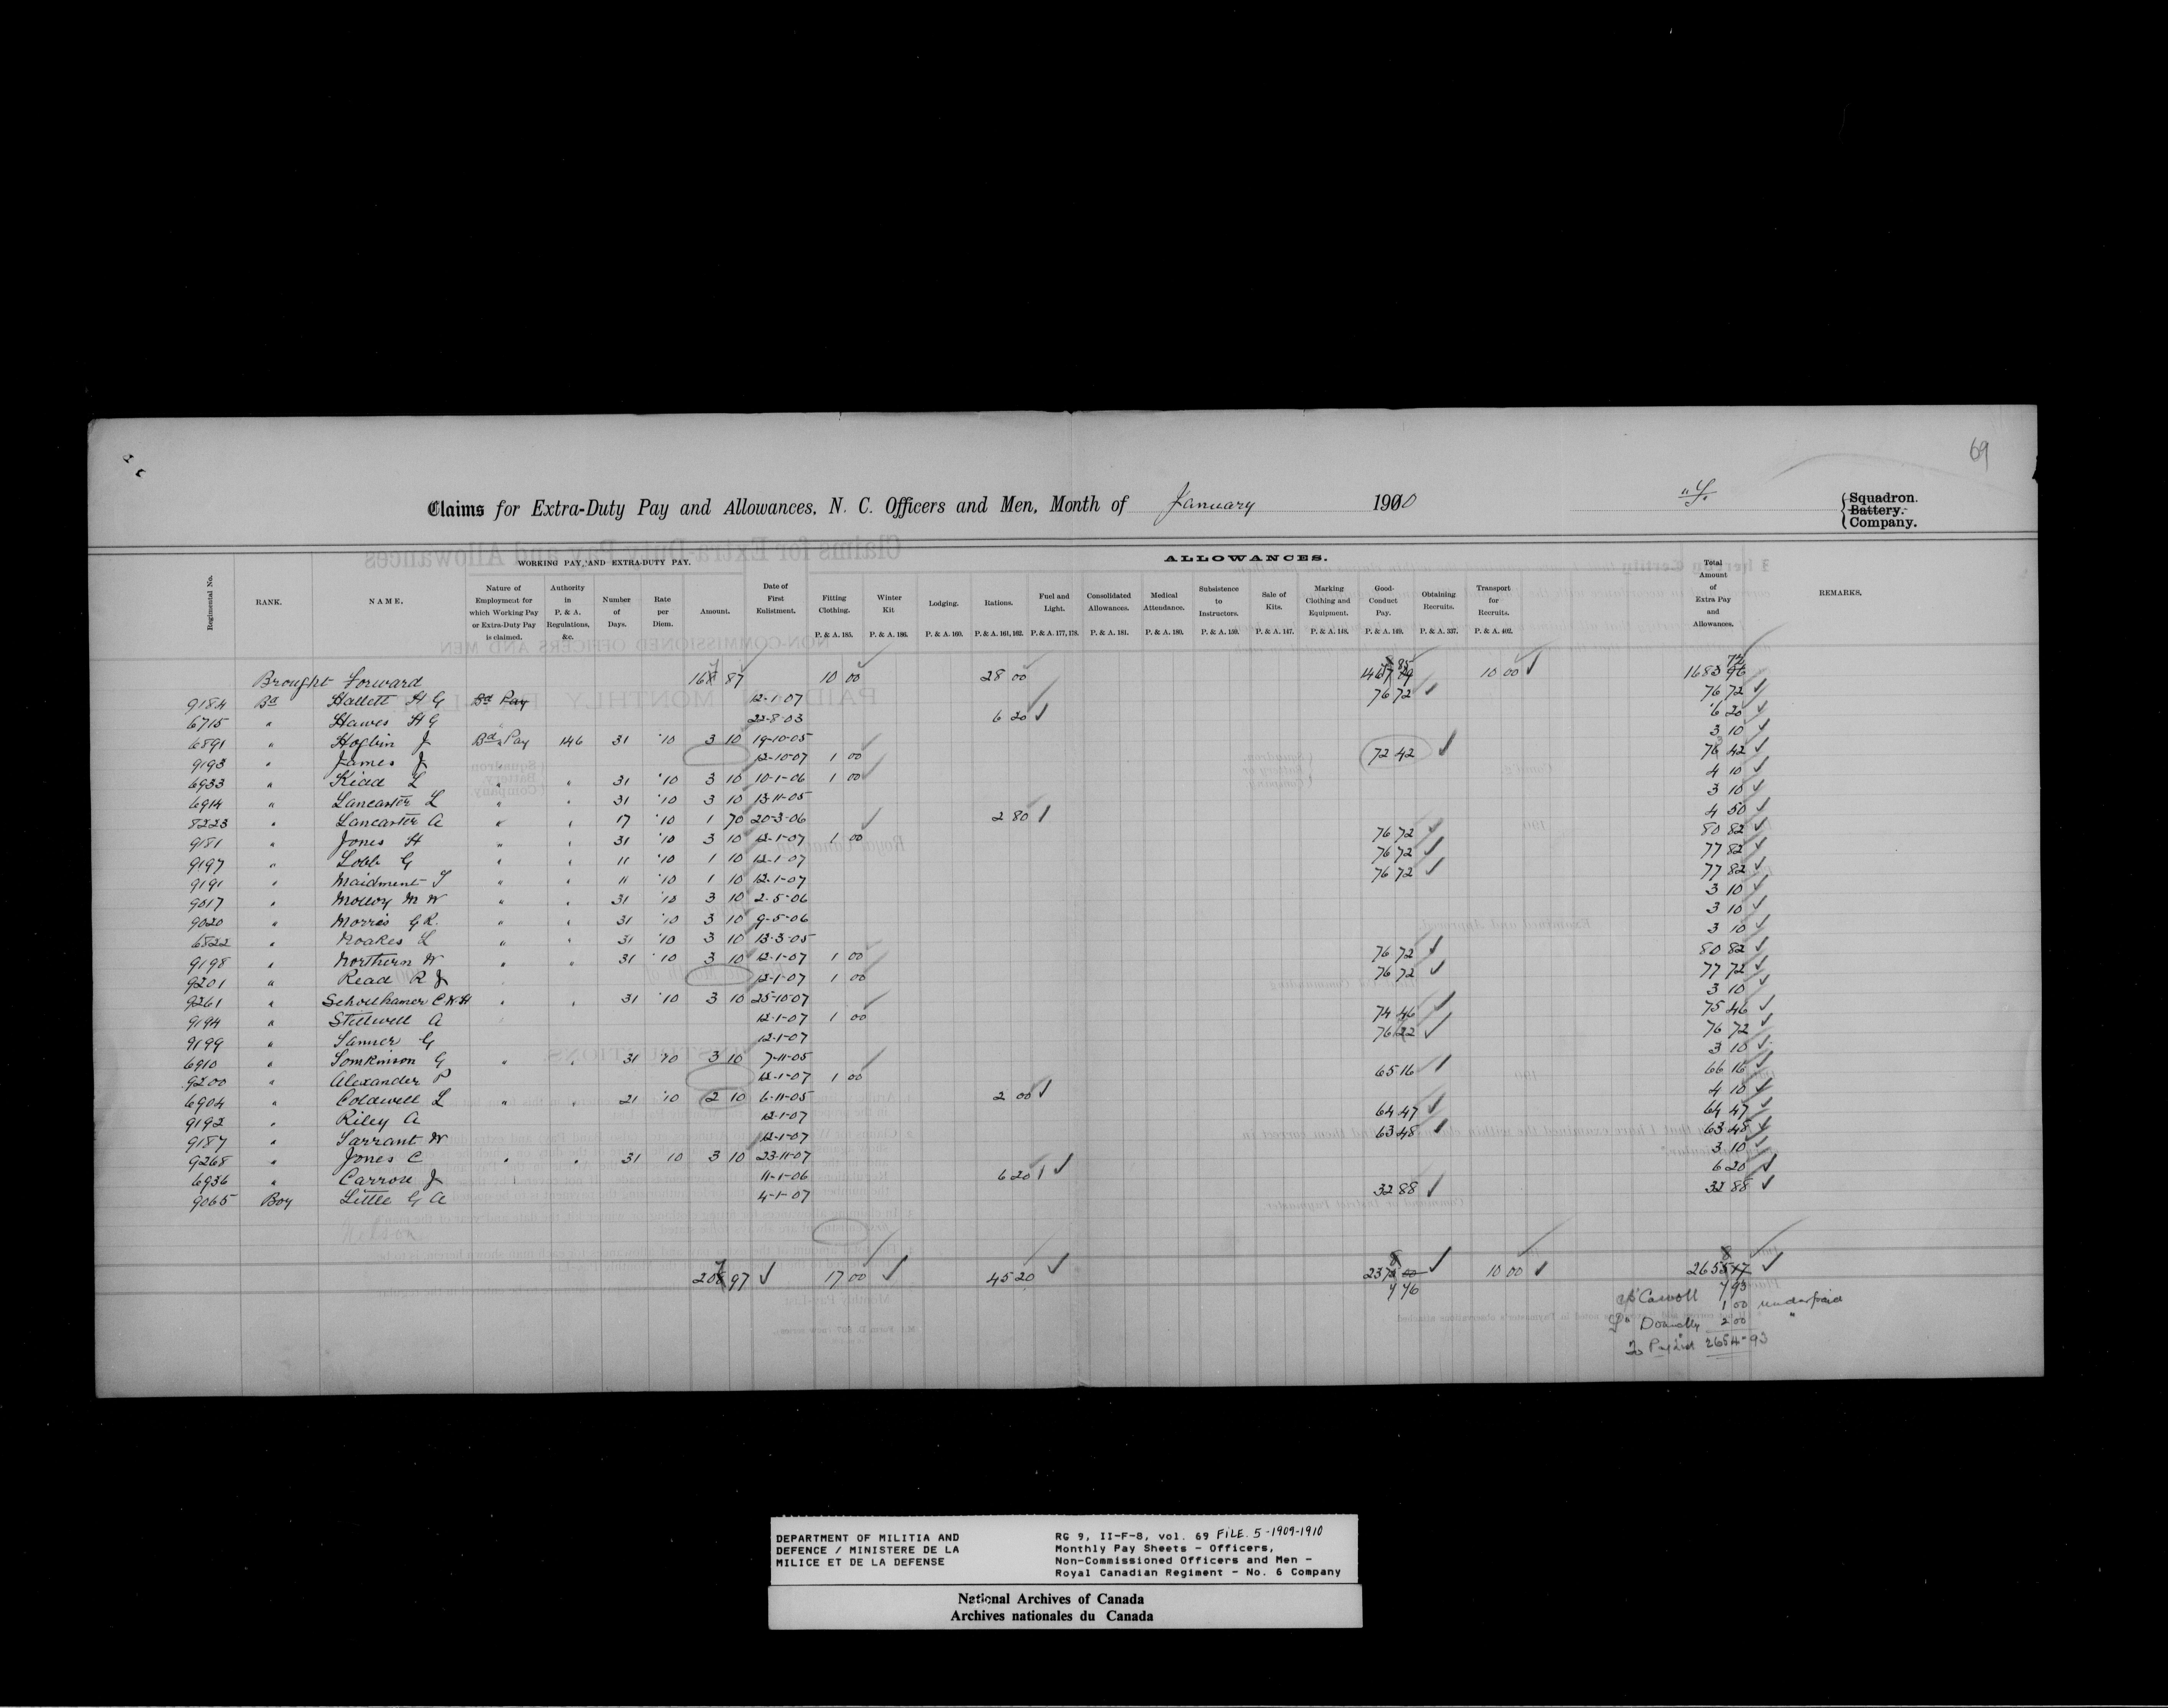 69
Claims for Extra-Duty Pay and Allowances, N. C. Officers and Men, Month of January 1910
Squadron.
Battery.
Company.
ALLOWANCES.
WORKING PAY, AND EXTRA-DUTY PAY.
Regimental No. RANK. NAME. Nature of Employment for which Working Pay or Extra-Duty Pay is claimed. Authority in P. & A. Regulations, &c. Number of Days. Rate per Diem. Amount. Date of First Enlistment. Fitting Clothing. P. & A. 185. Winter Kit P. & A. 186. Lodging. P. & A. 160. Rations. P. & A. 161, 162. Fuel and Light. P. & A. 177, 178. Consolidated Allowances. P. & A. 181. Medical Attendance. P. & A. 180. Subsistence to Instructors. P. & A. 159. Sale of Kits. P. & A. 147. Marking Clothing and Equipment. P. & A. 148. Good-Conduct Pay. P. & A. 149. Obtaining Recruits. P. & A. 337. Transport for Recruits. P. & A. 402. Total Amount of Extra Pay and Allowances. REMARKS.
Brought Forward 87 10 00 28 00 10 00 1683
9184 Bd Hallett H G Bd Pay 12-1-07 76 72 76 72
6715 " Hawes H G 22-8-03 6 20 6 20
6891 " Hogbin J Bd Pay 146 31 .10 3 10 19-10-05 3 10
9193 " James J 12-10-07 1 00 72 42 76 42
6933 " Kidd L " " 31 .10 3 10 10-1-06 1 00 4 10
6914 " Lancaster L " " 31 .10 3 10 13-11-05 3 10
8223 " Lancaster A " " 17 .10 1 70 20-3-06 2 80 4 50
9181 " Jones H " " 31 .10 3 10 12-1-07 1 00 76 72 80 82
9197 " Lobb G " " 11 .10 1 10 12-1-07 76 72 77 82
9191 " Maidment S " " 11 .10 1 10 12-1-07 76 72 77 82
9017 " Molloy M W " " 31 .10 3 10 2-5-06 3 10
9020 " Morris G R. " " 31 .10 3 10 9-5-06 3 10
6822 " Noakes L " " 31 .10 3 10 13-3-05 3 10
9198 " Northern W " " 31 .10 3 10 12-1-07 1 00 76 72 80 82
9201 " Read R J 12-1-07 1 00 76 72 77 72
9261 " C W H " " 31 .10 3 10 25-10-07 3 10
9194 " Stillwell A 12-1-07 1 00 74 46 75 46
9199 " Tanner G 12-1-07 76 72 76 72
6910 " Tomkinson G " " 31 .10 3 10 7-11-05 3 10
9200 " Alexander P 12-1-07 1 00 65 16 66 16
6904 " Coldwell L " " 21 .10 2 10 6-11-05 2 00 4 10
9192 " Riley A 12-1-07 64 47 64 47
9187 " Tarrant W 12-1-07 63 48 63 48
9268 " Jones C " " 31 10 3 10 23-11-07 3 10
6936 " J 11-1-06 6 20 6 20
9065 Boy Little G A 4-1-07 32 88 32 88
Nelson
97 17 00 45 20 10 00
Carroll 1 00 underpaid
Donnelly 2 00 "
2654-93
DEPARTMENT OF MILITIA AND
DEFENCE / MINISTERE DE LA
MILICE ET DE LA DEFENSE
RG 9, II-F-8, vol. 69 FILE. 5-1909-1910
Monthly Pay Sheets - Officers,
Non-Commissioned Officers and Men -
Royal Canadian Regiment - No. 6 Company
National Archives of Canada
Archives nationales du Canada